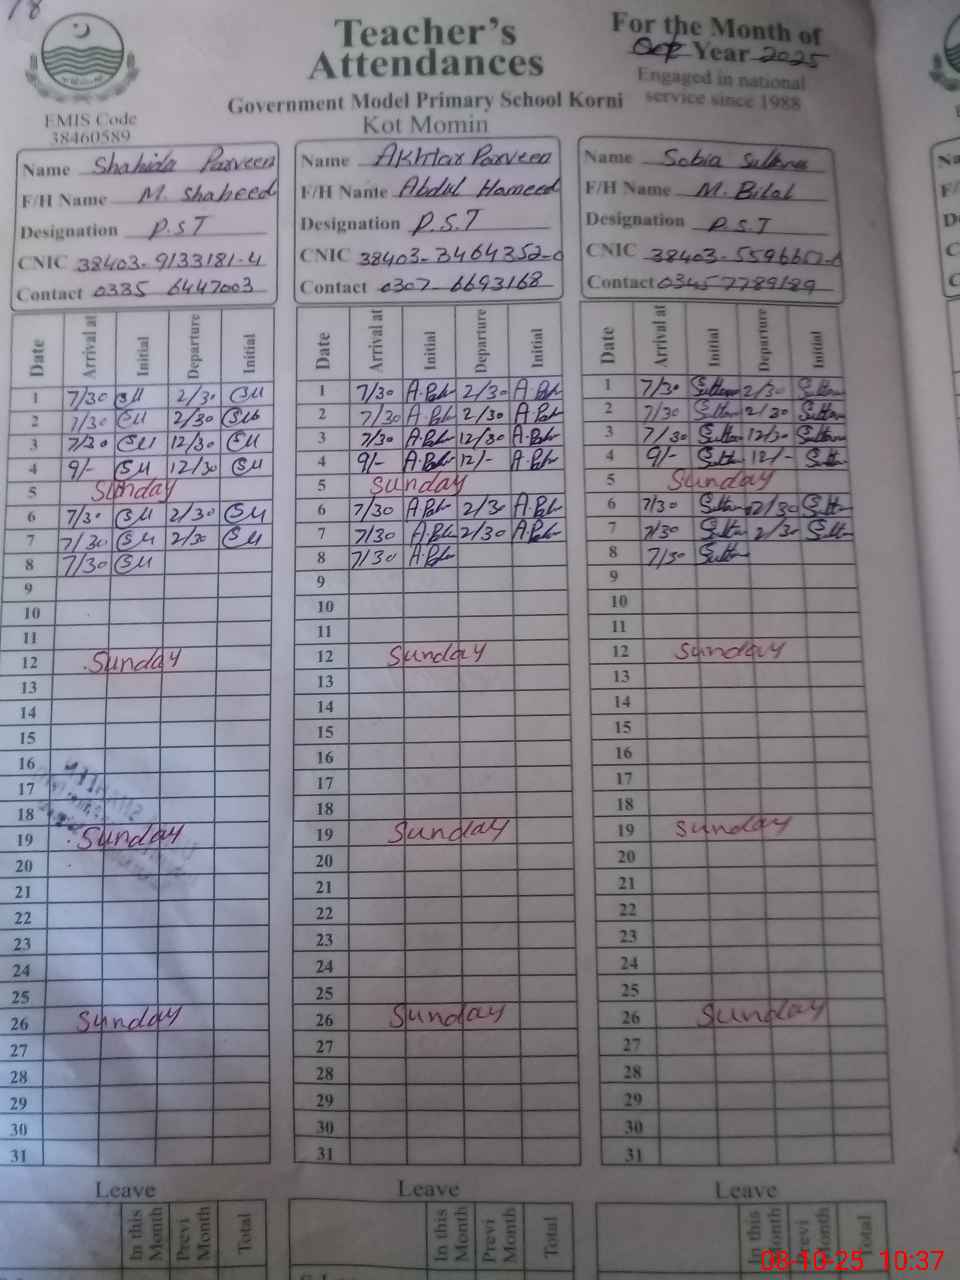 18
Teacher's
Attendances
For the Month of
Oct Year 2025
Engaged in national
service since 1988
Government Model Primary School Korni
Kot Momin
EMIS Code
38460589
Name Shahida Parveen
F/H Name M. Shaheed
Designation P.S.T
CNIC 38403-9133181-4
Contact 0335 6447003
Date Arrival at Initial Departure Initial
1 7/30 SM 2/30 SM
2 7/30 SM 2/30 SM
3 7/30 SM 12/30 SM
4 9/- SM 12/30 SM
5 Sunday
6 7/30 SM 2/30 SM
7 7/30 SM 2/30 SM
8 7/30 SM
9
10
11
12 Sunday
13
14
15
16
17
18
19 Sunday
20
21
22
23
24
25
26 Sunday
27
28
29
30
31
Leave
In this Month Previ Month Total
Name Akhtar Parveen
F/H Name Abdul Hameed
Designation P.S.T
CNIC 38403-3464352-0
Contact 0307-6693168
Date Arrival at Initial Departure Initial
1 7/30 2/30
2 7/30 2/30
3 7/30 12/30
4 9/- 12/-
5 Sunday
6 7/30 2/30
7 7/30 2/30
8 7/30
9
10
11
12 Sunday
13
14
15
16
17
18
19 Sunday
20
21
22
23
24
25
26 Sunday
27
28
29
30
31
Leave
In this Month Previ Month Total
Name Sobia Sultana
F/H Name M. Bilal
Designation P.S.T
CNIC
Contact 03457789189
Date Arrival at Initial Departure Initial
1 7/30 2/30
2 7/30 2/30
3 7/30 12/30
4 9/- 12/-
5 Sunday
6 7/30 2/30
7 7/30 2/30
8 7/30
9
10
11
12 Sunday
13
14
15
16
17
18
19 Sunday
20
21
22
23
24
25
26 Sunday
27
28
29
30
31
Leave
In this Month Previ Month Total
08-10-25 10:37